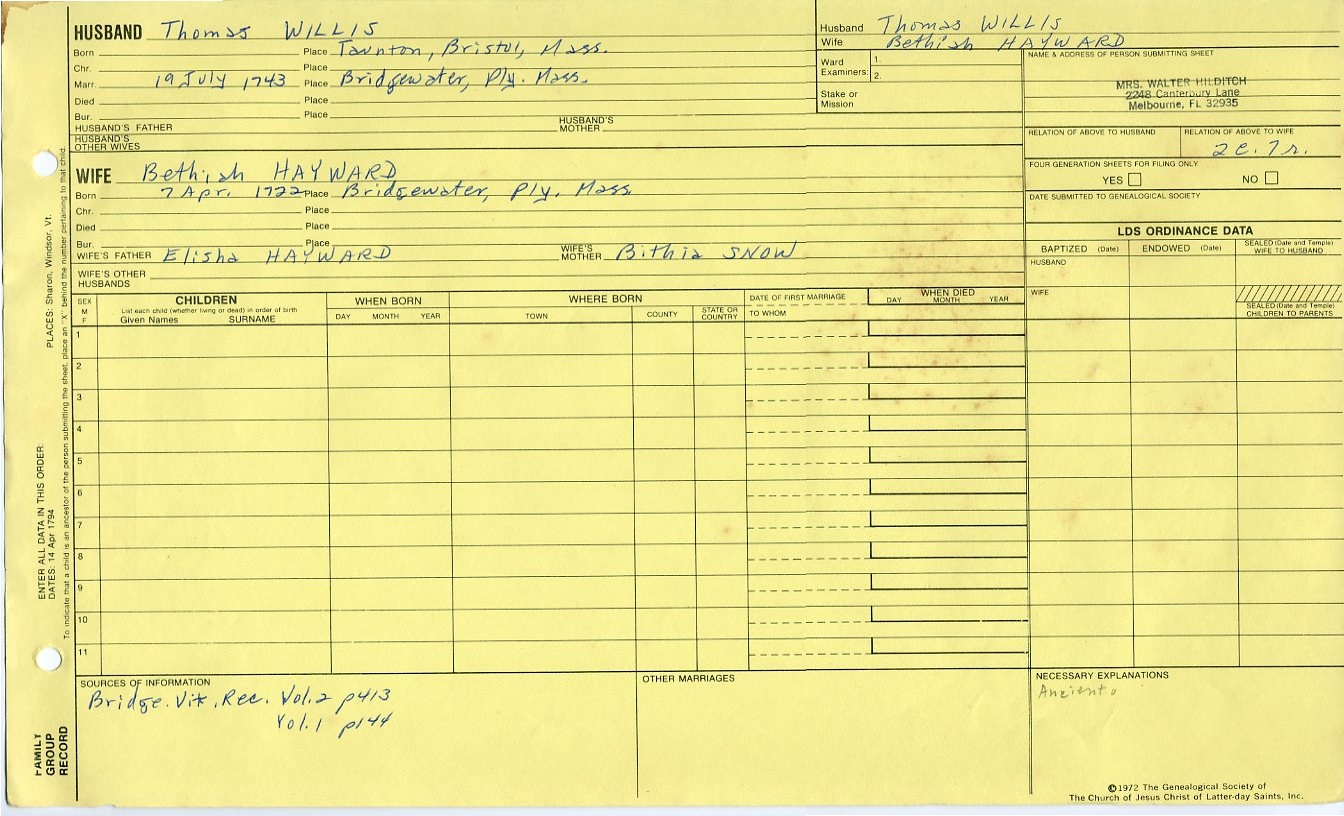 HUSBAND Thomas WILLIS
Born Place Taunton, Bristol, Mass.
Chr. Place
Marr. 19 July 1743 Place Bridgewater, Ply. Mass.
Died Place
Bur. Place
HUSBAND'S FATHER HUSBAND'S MOTHER
HUSBAND'S OTHER WIVES
WIFE Bethiah HAYWARD
Born 7 Apr. 1722 Place Bridgewater, Ply. Mass
Chr. Place
Died Place
Bur. Place
WIFE'S FATHER Elisha HAYWARD WIFE'S MOTHER Bithia SNOW
WIFE'S OTHER HUSBANDS
Husband Thomas WILLIS
Wife Bethiah HAYWARD
Ward Examiners: 1.
2.
Stake or Mission
NAME & ADDRESS OF PERSON SUBMITTING SHEET
MRS. WALTER HILDITCH
2248 Canterbury Lane
Melbourne, FL 32935
RELATION OF ABOVE TO HUSBAND RELATION OF ABOVE TO WIFE
2c. 7r.
FOUR GENERATION SHEETS FOR FILING ONLY
YES NO
DATE SUBMITTED TO GENEALOGICAL SOCIETY
LDS ORDINANCE DATA
BAPTIZED (Date) ENDOWED (Date) SEALED (Date and Temple) WIFE TO HUSBAND
HUSBAND
WIFE
SEALED (Date and Temple) CHILDREN TO PARENTS
SEX M F
CHILDREN
List each child (whether living or dead) in order of birth
Given Names SURNAME
WHEN BORN
DAY MONTH YEAR
WHERE BORN
TOWN COUNTY STATE OR COUNTRY
DATE OF FIRST MARRIAGE
TO WHOM
WHEN DIED
DAY MONTH YEAR
1
2
3
4
5
6
7
8
9
10
11
SOURCES OF INFORMATION
Bridge. Vit. Rec. Vol. 2 p413
Vol. 1 p144
OTHER MARRIAGES
NECESSARY EXPLANATIONS
©1972 The Genealogical Society of
The Church of Jesus Christ of Latter-day Saints, Inc.
PLACES: Sharon, Windsor, Vt.
To indicate that a child is an ancestor of the person submitting the sheet, place an "X" behind the number pertaining to that child.
ENTER ALL DATA IN THIS ORDER:
DATES: 14 Apr 1794
FAMILY
GROUP
RECORD